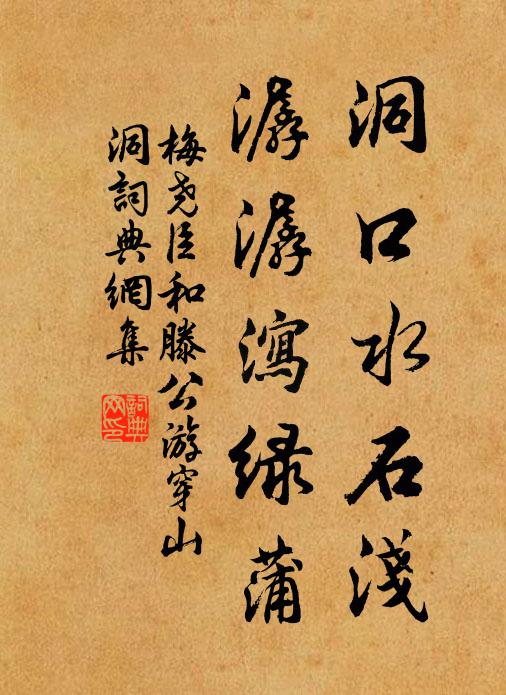 洞口水石淺
潺潺瀉绿蒲
梅尧臣和滕公游穿山
洞詞典網集
詞典
网印